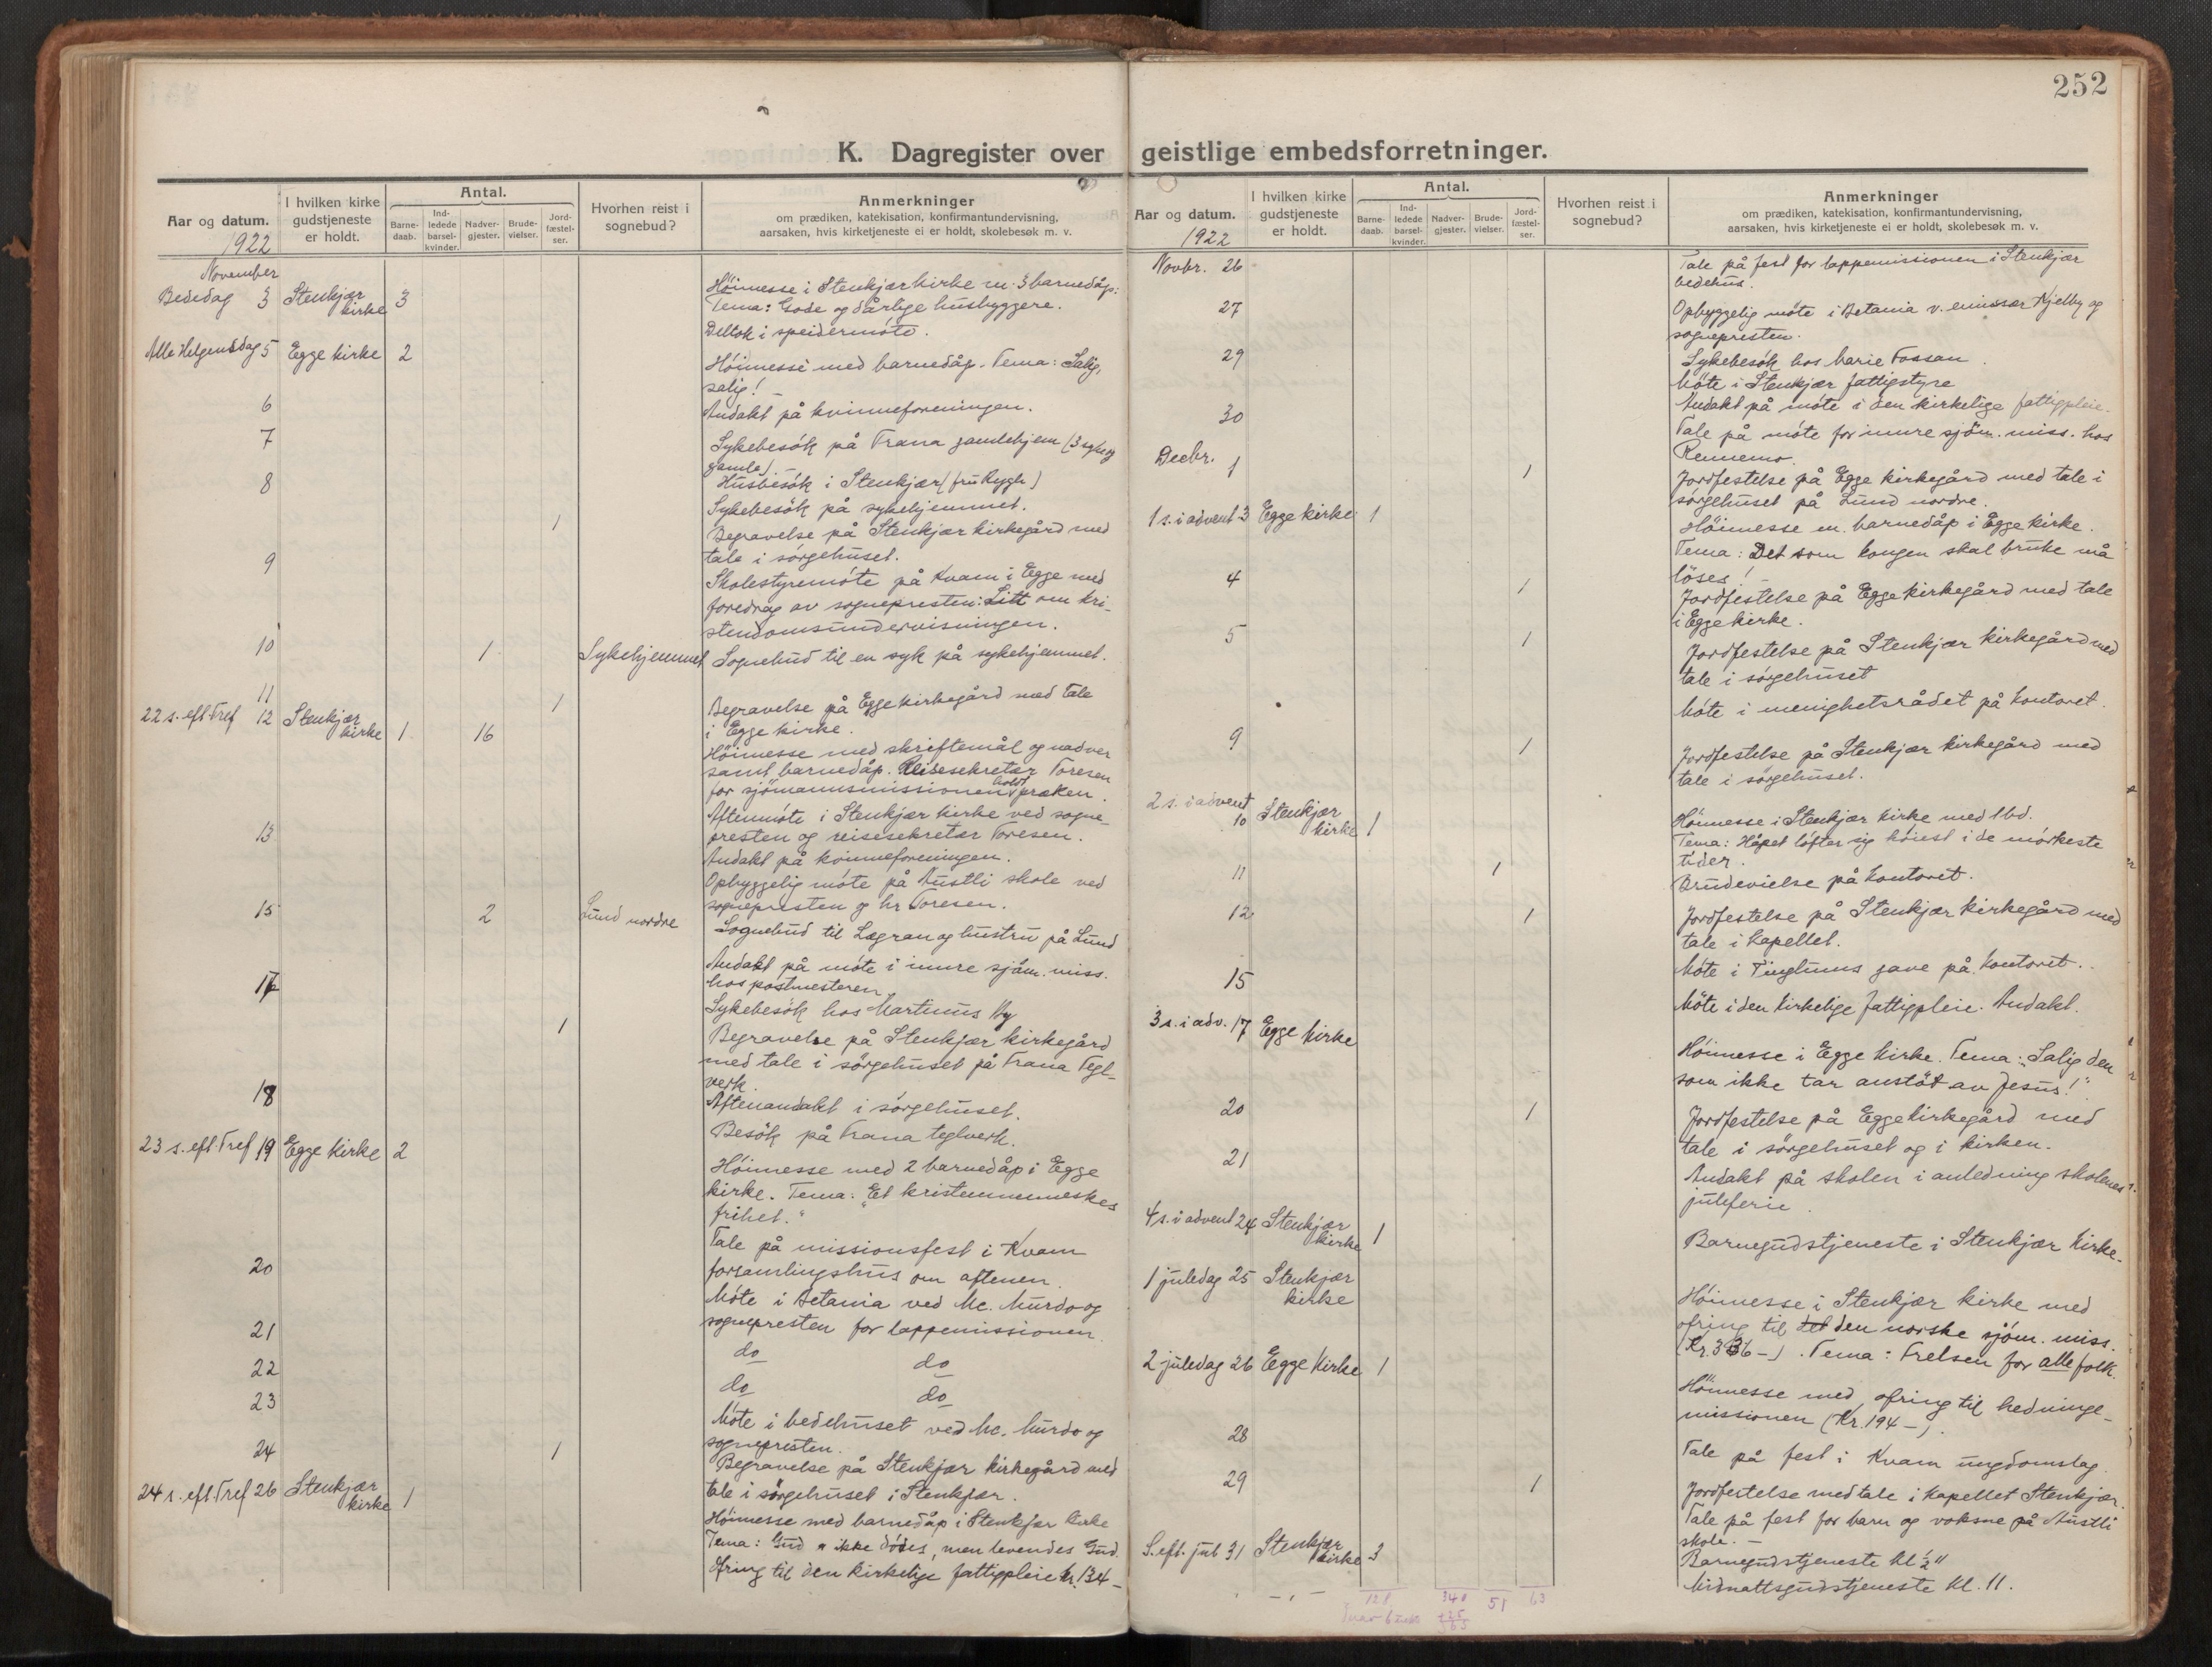 252
K. Dagregister over geistlige embedsforretninger.
Aar og datum.
1922
I hvilken kirke gudstjeneste er holdt.
Antal.
Barne-daab.
Ind-ledede barsel-kvinder.
Nadver-gjester.
Brude-vielser.
Jord-fæstel-ser.
Hvorhen reist i sognebud?
Anmerkninger
om prædiken, katekisation, konfirmantundervisning,
aarsaken, hvis kirketjeneste ei er holdt, skolebesøk m. v.
November
Bededag 3 Stenkjær kirke 3
Höimesse i Stenkjær kirke m. 3 barnedåp:
Tema: Gode og dårlige husbyggere.
Deltok i speidermöte.
Alle Helgensdag 5 Egge kirke 2
Höimesse med barnedåp. Tema: Salig,
salig!
6
Andakt på kvinneforeningen.
7
Sykebesök på Frana gamlehjem (3 syke og
gamle)
8
Husbesök i Stenkjær (fru Rygh)
Sykebesök på sykehjemmet.
1
Begravelse på Stenkjær kirkegård med
tale i sörgehuset.
9
Skolestyremöte på Kvam i Egge med
foredrag av sognepresten: Litt om kri-
stendomsundervisningen.
10 1 Sykehjemmet
Sognebud til en syk på sykehjemmet.
11 1
Begravelse på Egge kirkegård med tale
i Egge kirke.
22 s. eft. Tref 12 Stenkjær kirke 1 16
Höimesse med skriftemål og nadver
samt barnedåp. Reisesekretær Toresen
for sjömannsmissionen holdt præken.
Aftenmöte i Stenkjær kirke ved sogne-
presten og reisesekretær Toresen.
13
Andakt på kvinneforeningen.
Opbyggelig möte på Austli skole ved
sognepresten og hr Toresen.
15 2 Lund nordre
Sognebud til Lægran og hustru på Lund
Andakt på möte i indre sjöm. miss.
hos postmesteren
17
Sykebesök hos Martinus By
1
Begravelse på Stenkjær kirkegård
med tale i sörgehuset på Frana Tegl-
verk.
18
Aftenandakt i sörgehuset.
Besök på Frana teglverk.
23 s. eft. Tref 19 Egge kirke 2
Höimesse med 2 barnedåp i Egge
kirke. Tema: "Et kristenmenneskes
frihet."
Tale på missionsfest i Kvam
forsamlingshus om aftenen.
20
Möte i Betania ved Mc. Murdo og
sognepresten for lappemissionen.
21
do do
22
do do
23
Möte i bedehuset ved Mc. Murdo og
sognepresten.
24 1
Begravelse på Stenkjær kirkegård med
tale i sörgehuset i Stenkjær.
24 s. eft. Tref 26 Stenkjær kirke 1
Höimesse med barnedåp i Stenkjær kirke
Tema: Gud er ikke dødes, men levendes Gud.
Ofring til den kirkelige fattigpleie kr. 134-
Aar og datum.
1922
I hvilken kirke gudstjeneste er holdt.
Antal.
Barne-daab.
Ind-ledede barsel-kvinder.
Nadver-gjester.
Brude-vielser.
Jord-fæstel-ser.
Hvorhen reist i sognebud?
Anmerkninger
om prædiken, katekisation, konfirmantundervisning,
aarsaken, hvis kirketjeneste ei er holdt, skolebesøk m. v.
Novbr. 26
Tale på fest for lappemissionen i Stenkjær
bedehus.
27
Opbyggelig möte i Betania v. emissær Kjelby og
sognepresten.
29
Sykebesök hos Marie Fossan.
Möte i Stenkjær fattigstyre
Andakt på möte i den kirkelige fattigpleie.
30
Tale på möte for indre sjöm. miss. hos
Rennemo.
Decbr. 1 1
Jordfestelse på Egge kirkegård med tale i
sörgehuset på Lund nordre.
1 s. i advent 3 Egge kirke 1
Höimesse m. barnedåp i Egge kirke.
Tema: Det som kongen skal bruke må
löses!
4 1
Jordfestelse på Egge kirkegård med tale
i Egge kirke.
5 1
Jordfestelse på Stenkjær kirkegård med
tale i sörgehuset
Möte i menighetsrådet på kontoret.
9 1
Jordfestelse på Stenkjær kirkegård med
tale i sörgehuset.
2 s. i advent 10 Stenkjær kirke 1
Höimesse i Stenkjær kirke med 1 bd.
Tema: Håpet löfter sig höiest i de mörkeste
tider.
11 1
Brudevielse på kontoret.
12 1
Jordfestelse på Stenkjær kirkegård med
tale i kapellet.
Möte i Tinglums gave på kontoret.
15
Möte i den kirkelige fattigpleie. Andakt.
3 s. i adv. 17 Egge kirke
Höimesse i Egge kirke. Tema: "Salig den
som ikke tar anstöt av Jesus!"
20 1
Jordfestelse på Egge kirkegård med
tale i sörgehuset og i kirken.
21
Andakt på skolen i anledning skolenes
juleferie.
4 s. i advent 24 Stenkjær kirke 1
Barnegudstjeneste i Stenkjær kirke.
1 juledag 25 Stenkjær kirke
Höimesse i Stenkjær kirke med
ofring til det den norske sjöm. miss.
(Kr. 336-). Tema: Frelsen for alle folk.
2 juledag 26 Egge kirke 1
Höimesse med ofring til hedninge-
missionen (Kr. 194-).
28
Tale på fest i Kvam ungdomslag.
29 1
Jordfestelse med tale i kapellet Stenkjær.
Tale på fest for barn og voksne på Austli
skole. -
S. eft. jul 31 Stenkjær kirke 3
Barnegudstjeneste kl ½ 11
Midnattsgudstjeneste kl. 11.
128 340 51 63
+25
365